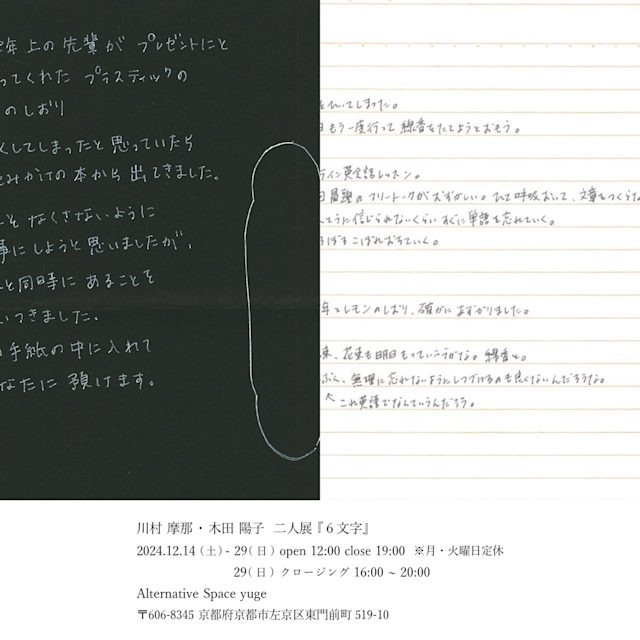 年上の先輩が プレゼントにと
ってくれた プラスティックの
のしおり
くしてしまったと思っていたら
みかけの本から出てきました。
と なくさないように
事にしようと思いましたが、
と同時に あることを
いつきました。
手紙の中に入れて
なたに 預けます。
をひいてしまった。
もう一度行って 線香をたてようとおもう。
イン英会話レッスン。
のフリートークがむずかしい。ひと呼吸おいて、文章をつくるな
うに信じられないくらい すぐに単語を忘れていく。
ぼろ こぼれおちていく。
年とレモンのしおり、確かにあずかりました。
花束も明日もっていこうかな。線香と。
ぶん、無理に忘れないようにしつづけるのも良くないんだろうな。
↑ これ英語でなんていうんだろう。
川村 摩那・木田 陽子 二人展『6文字』
2024.12.14(土)- 29(日) open 12:00 close 19:00 ※月・火曜日定休
29(日) クロージング 16:00 ~ 20:00
Alternative Space yuge
〒606-8345 京都府京都市左京区東門前町 519-10